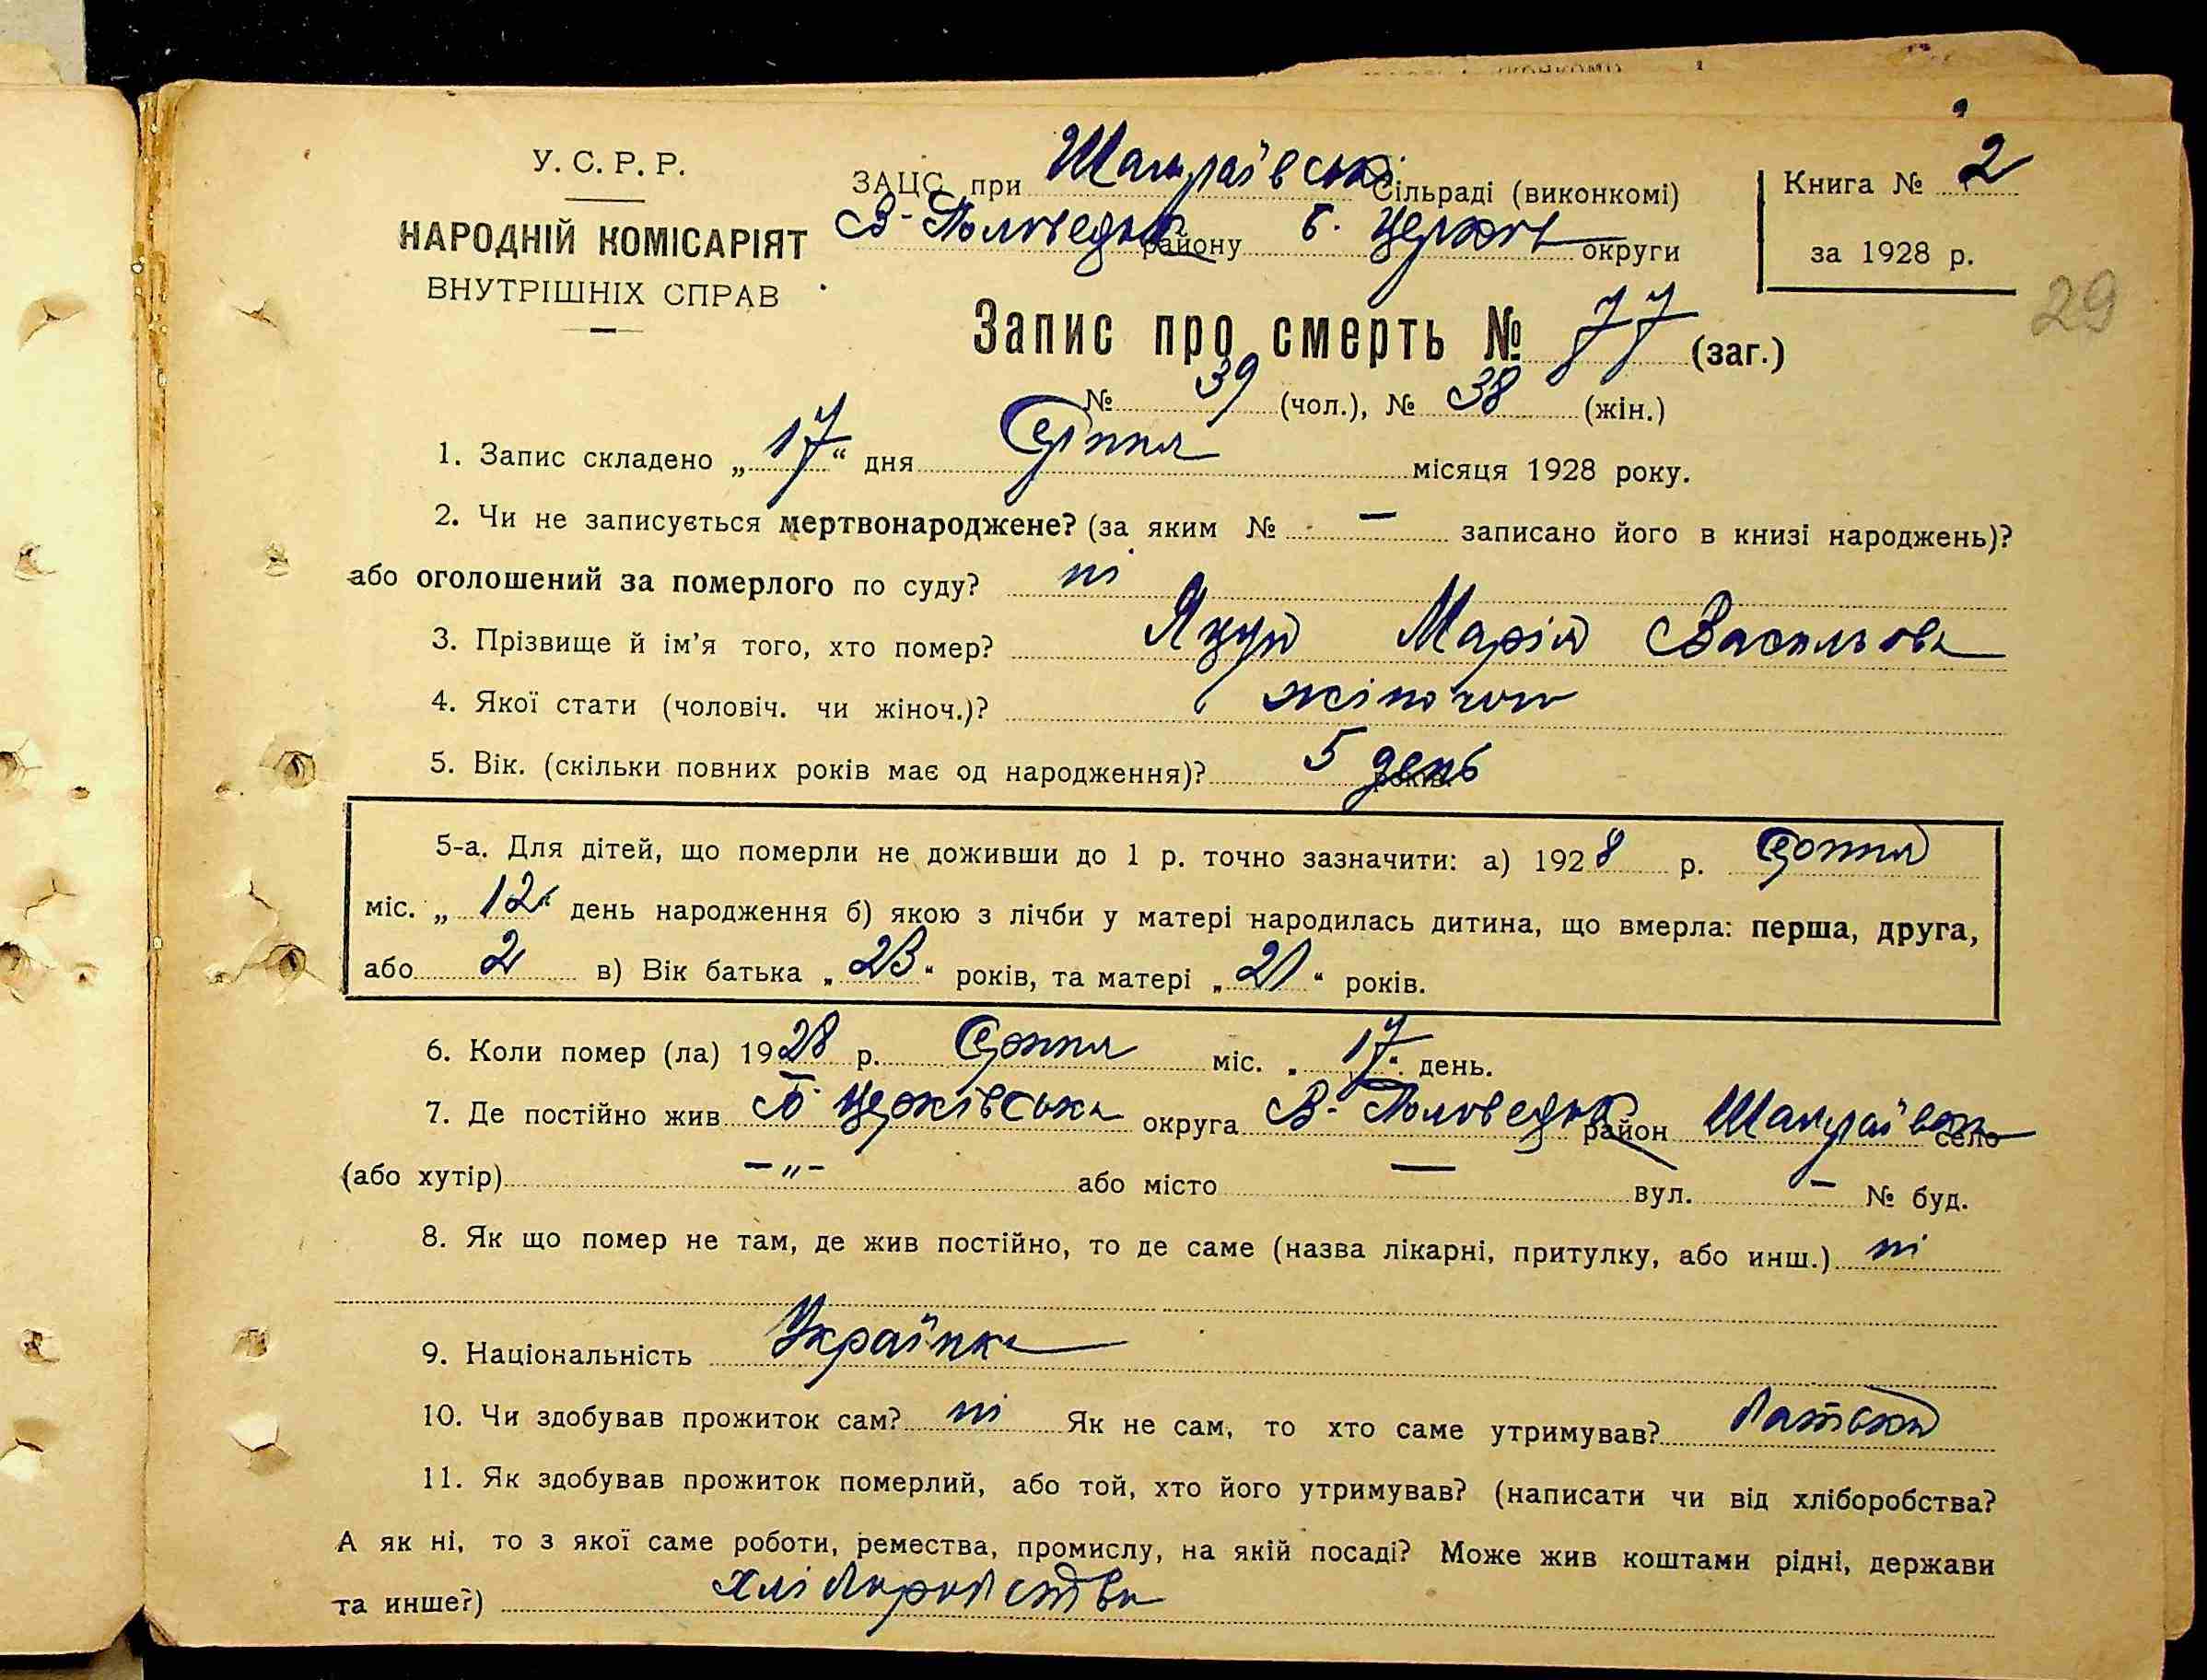 У. С. Р. Р.
НАРОДНІЙ КОМІСАРІЯТ
ВНУТРІШНІХ СПРАВ
ЗАЦС при Шамраївській Сільраді (виконкомі)
В-Половецьк району Б. Церков округи
Книга № 2
за 1928 р.
29
Запис про смерть № 77 (заг.)
№ 39 (чол.), № 38 (жін.)
1. Запис складено „17“ дня Серпня місяця 1928 року.
2. Чи не записується мертвонароджене? (за яким № — записано його в книзі народжень)?
або оголошений за померлого по суду? ні
3. Прізвище й ім'я того, хто помер? Марія Васильова
4. Якої стати (чоловіч. чи жіноч.)? жіночої
5. Вік. (скільки повних років має од народження)? 5 день
5-а. Для дітей, що померли не доживши до 1 р. точно зазначити: а) 1928 р. Серпня
міс. „12“ день народження б) якою з лічби у матері народилась дитина, що вмерла: перша, друга,
або 2 в) Вік батька „23“ років, та матері „21“ років.
6. Коли помер (ла) 1928 р. Серпня міс. „17“ день.
7. Де постійно жив Б Церківська округа В-Половецьк район Шамраївка село
(або хутір) —„— або місто — вул. — № буд.
8. Як що помер не там, де жив постійно, то де саме (назва лікарні, притулку, або инш.) ні
9. Національність Українка
10. Чи здобував прожиток сам? ні Як не сам, то хто саме утримував? батьки
11. Як здобував прожиток померлий, або той, хто його утримував? (написати чи від хліборобства?
А як ні, то з якої саме роботи, ремества, промислу, на якій посаді? Може жив коштами рідні, держави
та инше?) хліборобства